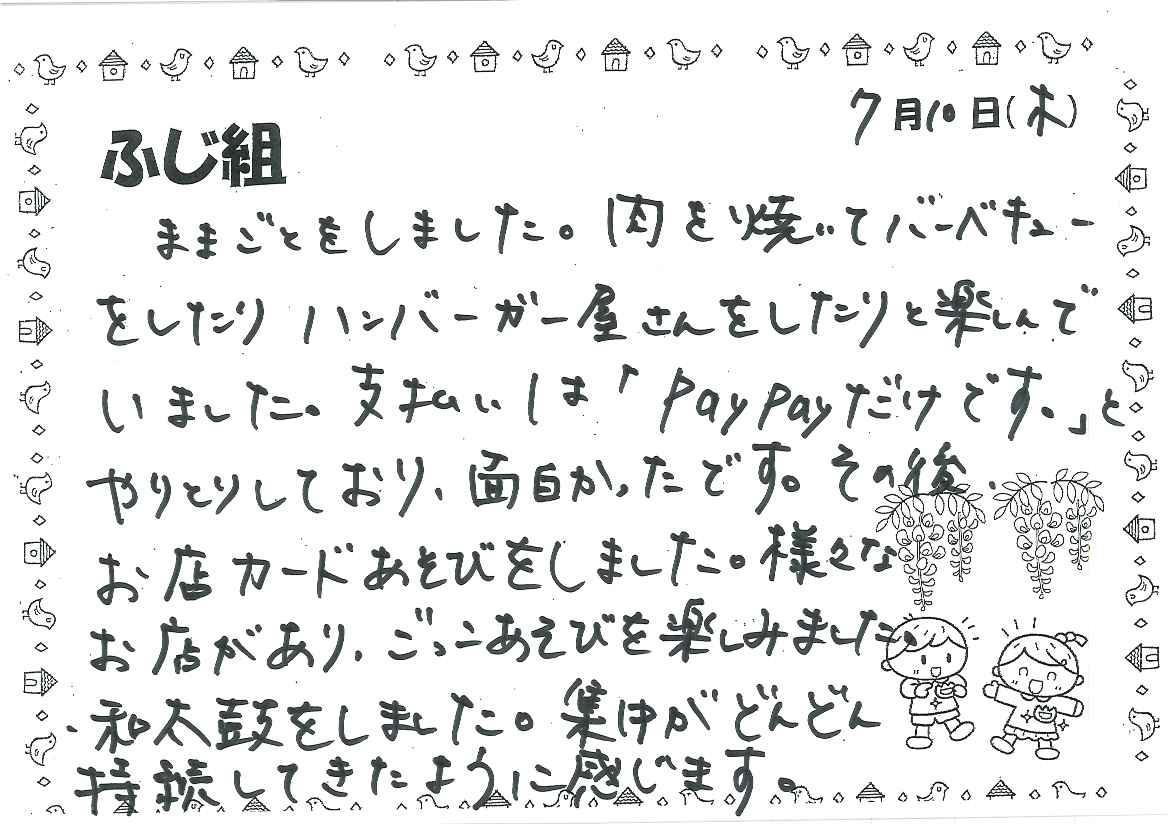 7月10日(木)
ふじ組
ままごとをしました。肉を焼いてバーベキュー
をしたりハンバーガー屋さんをしたりと楽しんで
いました。支払いは「PayPayだけです。」と
やりとりしており、面白かったです。その後、
お店カードあそびをしました。様々な
お店があり、ごっこあそびを楽しみました。
・和太鼓をしました。集中がどんどん
持続してきたように感じます。